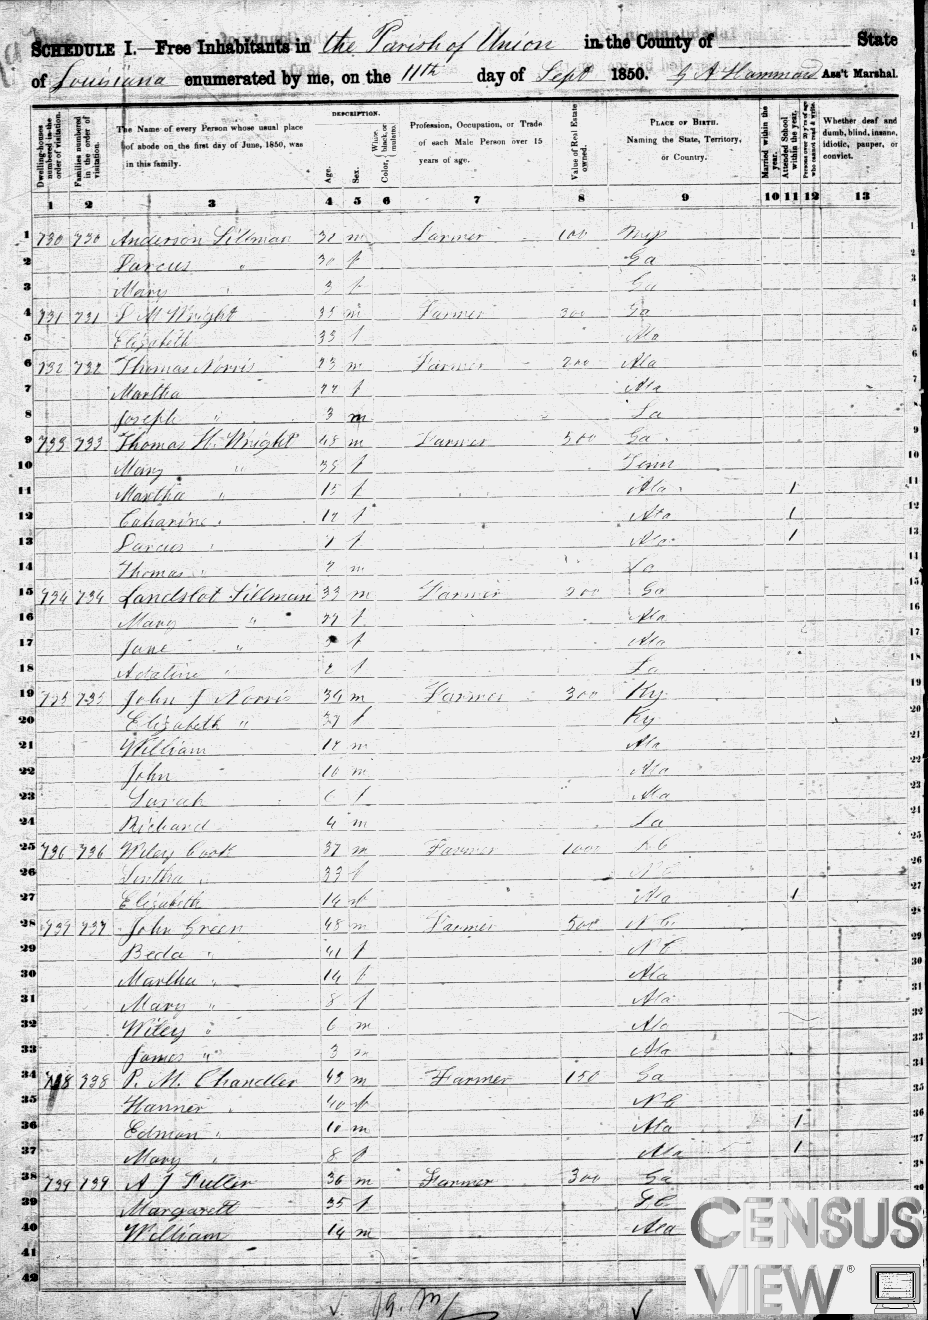 SCHEDULE I.—Free Inhabitants in the Parish of Union in the County of State
of Louisiana enumerated by me, on the 11th day of Sept 1850. G A Hammond Ass't Marshal.
Dwelling-houses numbered in the order of visitation. Families numbered in the order of visitation. The Name of every Person whose usual place of abode on the first day of June, 1850, was in this family. DESCRIPTION. Age. Sex. Color, White, black, or mulatto. Profession, Occupation, or Trade of each Male Person over 15 years of age. Value of Real Estate owned. PLACE OF BIRTH. Naming the State, Territory, or Country. Married within the year. Attended School within the year. Persons over 20 y'rs of age who cannot read & write. Whether deaf and dumb, blind, insane, idiotic, pauper, or convict.
1 2 3 4 5 6 7 8 9 10 11 12 13
1 730 730 Anderson Tillman 31 m Farmer 100 Mip 1
2 Darcus " 30 f Ga 2
3 Mary " 3 f Ga 3
4 731 731 S M Wright 35 m Farmer 300 Ga 4
5 Elizabeth 33 f Ala 5
6 732 732 Thomas Norris 23 m Farmer 200 Ala 6
7 Martha 22 f Ala 7
8 Joseph " 3 m La 8
9 733 733 Thomas H. Wright 48 m Farmer 500 Ga 9
10 Mary " 35 f Tenn 10
11 Martha " 15 f Ala 1 11
12 Catharine " 12 f Ala 1 12
13 Darcus " 7 f Ala 1 13
14 Thomas " 2 m La 14
15 734 734 Landslot Tillman 33 m Farmer 200 Ga 15
16 Mary " 27 f Ala 16
17 Jane " f Ala 17
18 Adaline " 2 f La 18
19 735 735 John J Norris 34 m Farmer 300 Ky 19
20 Elizabeth " 37 f Ky 20
21 William 12 m Ala 21
22 John 10 m Ala 22
23 Sarah 6 f Ala 23
24 Richard 4 m La 24
25 736 736 Wiley Cook 37 m Farmer 1000 N C 25
26 Sintha " 33 f N C 26
27 Elizabeth 14 f Ala 1 27
28 737 737 John Green 48 m Farmer 500 N C 28
29 Beda " 41 f N C 29
30 Martha " 14 f Ala 30
31 Mary " 8 f Ala 31
32 Wiley " 6 m Ala 32
33 James " 3 m Ala 33
34 738 738 P. M. Chandler 43 m Farmer 150 Ga 34
35 Hanner " 40 f N C 35
36 Edmon " 10 m Ala 1 36
37 Mary " 8 f Ala 1 37
38 739 739 A J Fuller 36 m Farmer 300 Ga 38
39 Margarett 35 f S C 39
40 William 14 m Ala
41
42
CENSUS
VIEW®